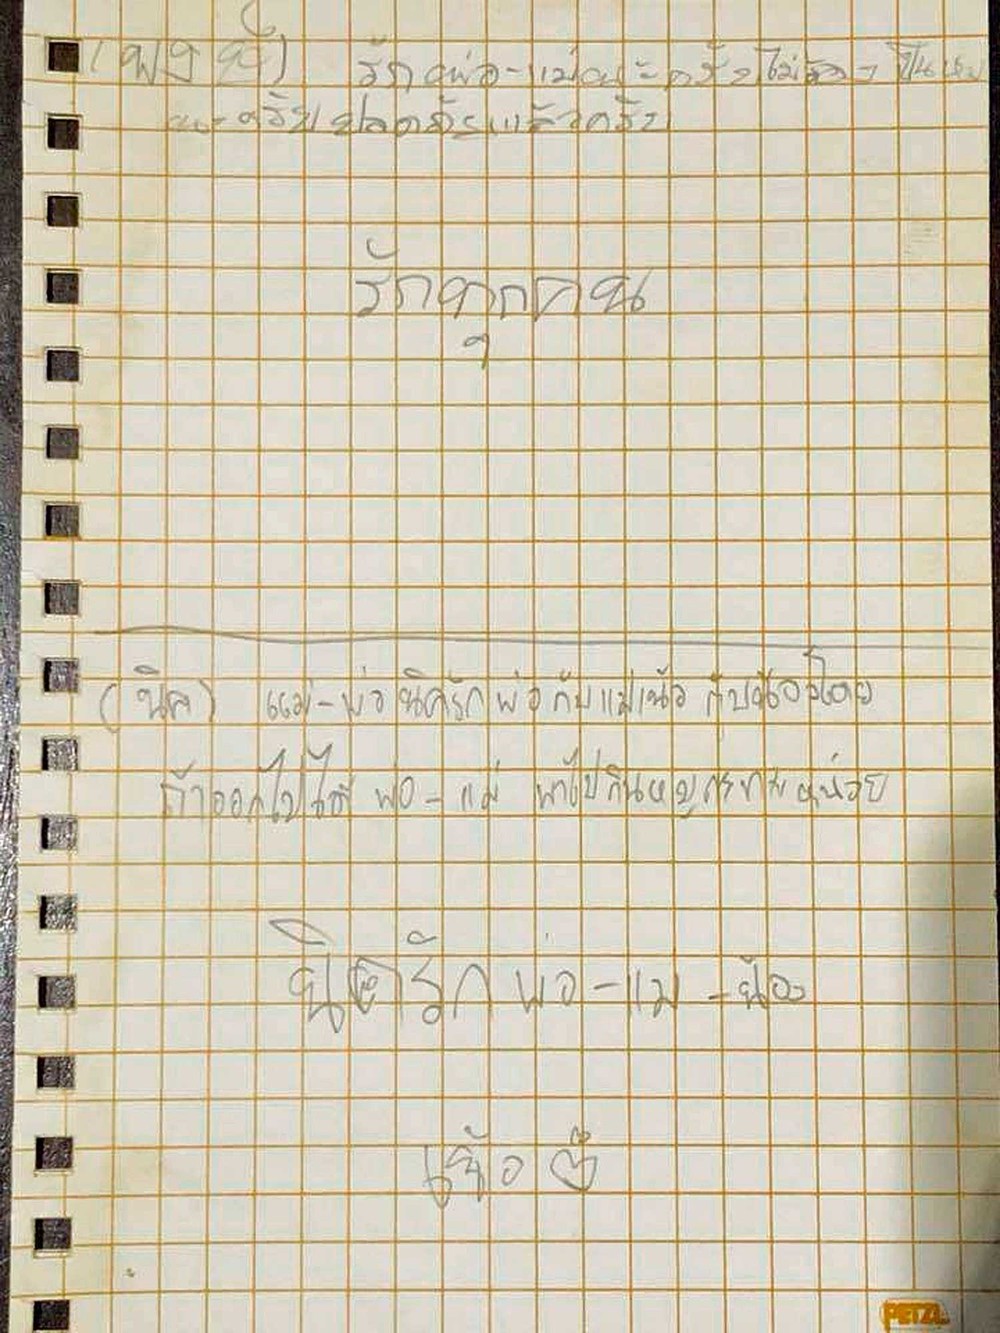 (มงๅี้) รักพ่อ-แม่นะครับไม่ต้องเป็นห่วง
นะครับปลอดภัยแล้วครับ
รักทุกคน
(นิค) แม่-พ่อ นิครักพ่อกับแม่เน้อ กับน้องโตย
ถ้าออกไปได้ พ่อ-แม่ พาไปกินหมูกระทะหน่อย
นิครักพ่อ-แม่-น้อง
เน้อ
PETZL